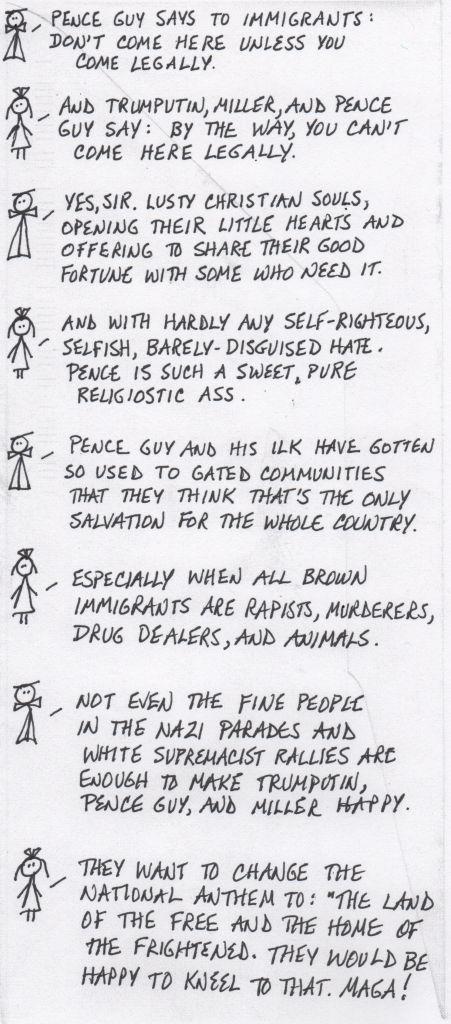 PENCE GUY SAYS TO IMMIGRANTS:
DON'T COME HERE UNLESS YOU
COME LEGALLY.
AND TRUMPUTIN, MILLER, AND PENCE
GUY SAY: BY THE WAY, YOU CAN'T
COME HERE LEGALLY.
YES, SIR. LUSTY CHRISTIAN SOULS,
OPENING THEIR LITTLE HEARTS AND
OFFERING TO SHARE THEIR GOOD
FORTUNE WITH SOME WHO NEED IT.
AND WITH HARDLY ANY SELF-RIGHTEOUS,
SELFISH, BARELY-DISGUISED HATE.
PENCE IS SUCH A SWEET, PURE
RELIGIOSTIC ASS.
PENCE GUY AND HIS ILK HAVE GOTTEN
SO USED TO GATED COMMUNITIES
THAT THEY THINK THAT'S THE ONLY
SALVATION FOR THE WHOLE COUNTRY.
ESPECIALLY WHEN ALL BROWN
IMMIGRANTS ARE RAPISTS, MURDERERS,
DRUG DEALERS, AND ANIMALS.
NOT EVEN THE FINE PEOPLE
IN THE NAZI PARADES AND
WHITE SUPREMACIST RALLIES ARE
ENOUGH TO MAKE TRUMPUTIN,
PENCE GUY, AND MILLER HAPPY.
THEY WANT TO CHANGE THE
NATIONAL ANTHEM TO: "THE LAND
OF THE FREE AND THE HOME OF
THE FRIGHTENED. THEY WOULD BE
HAPPY TO KNEEL TO THAT. MAGA!